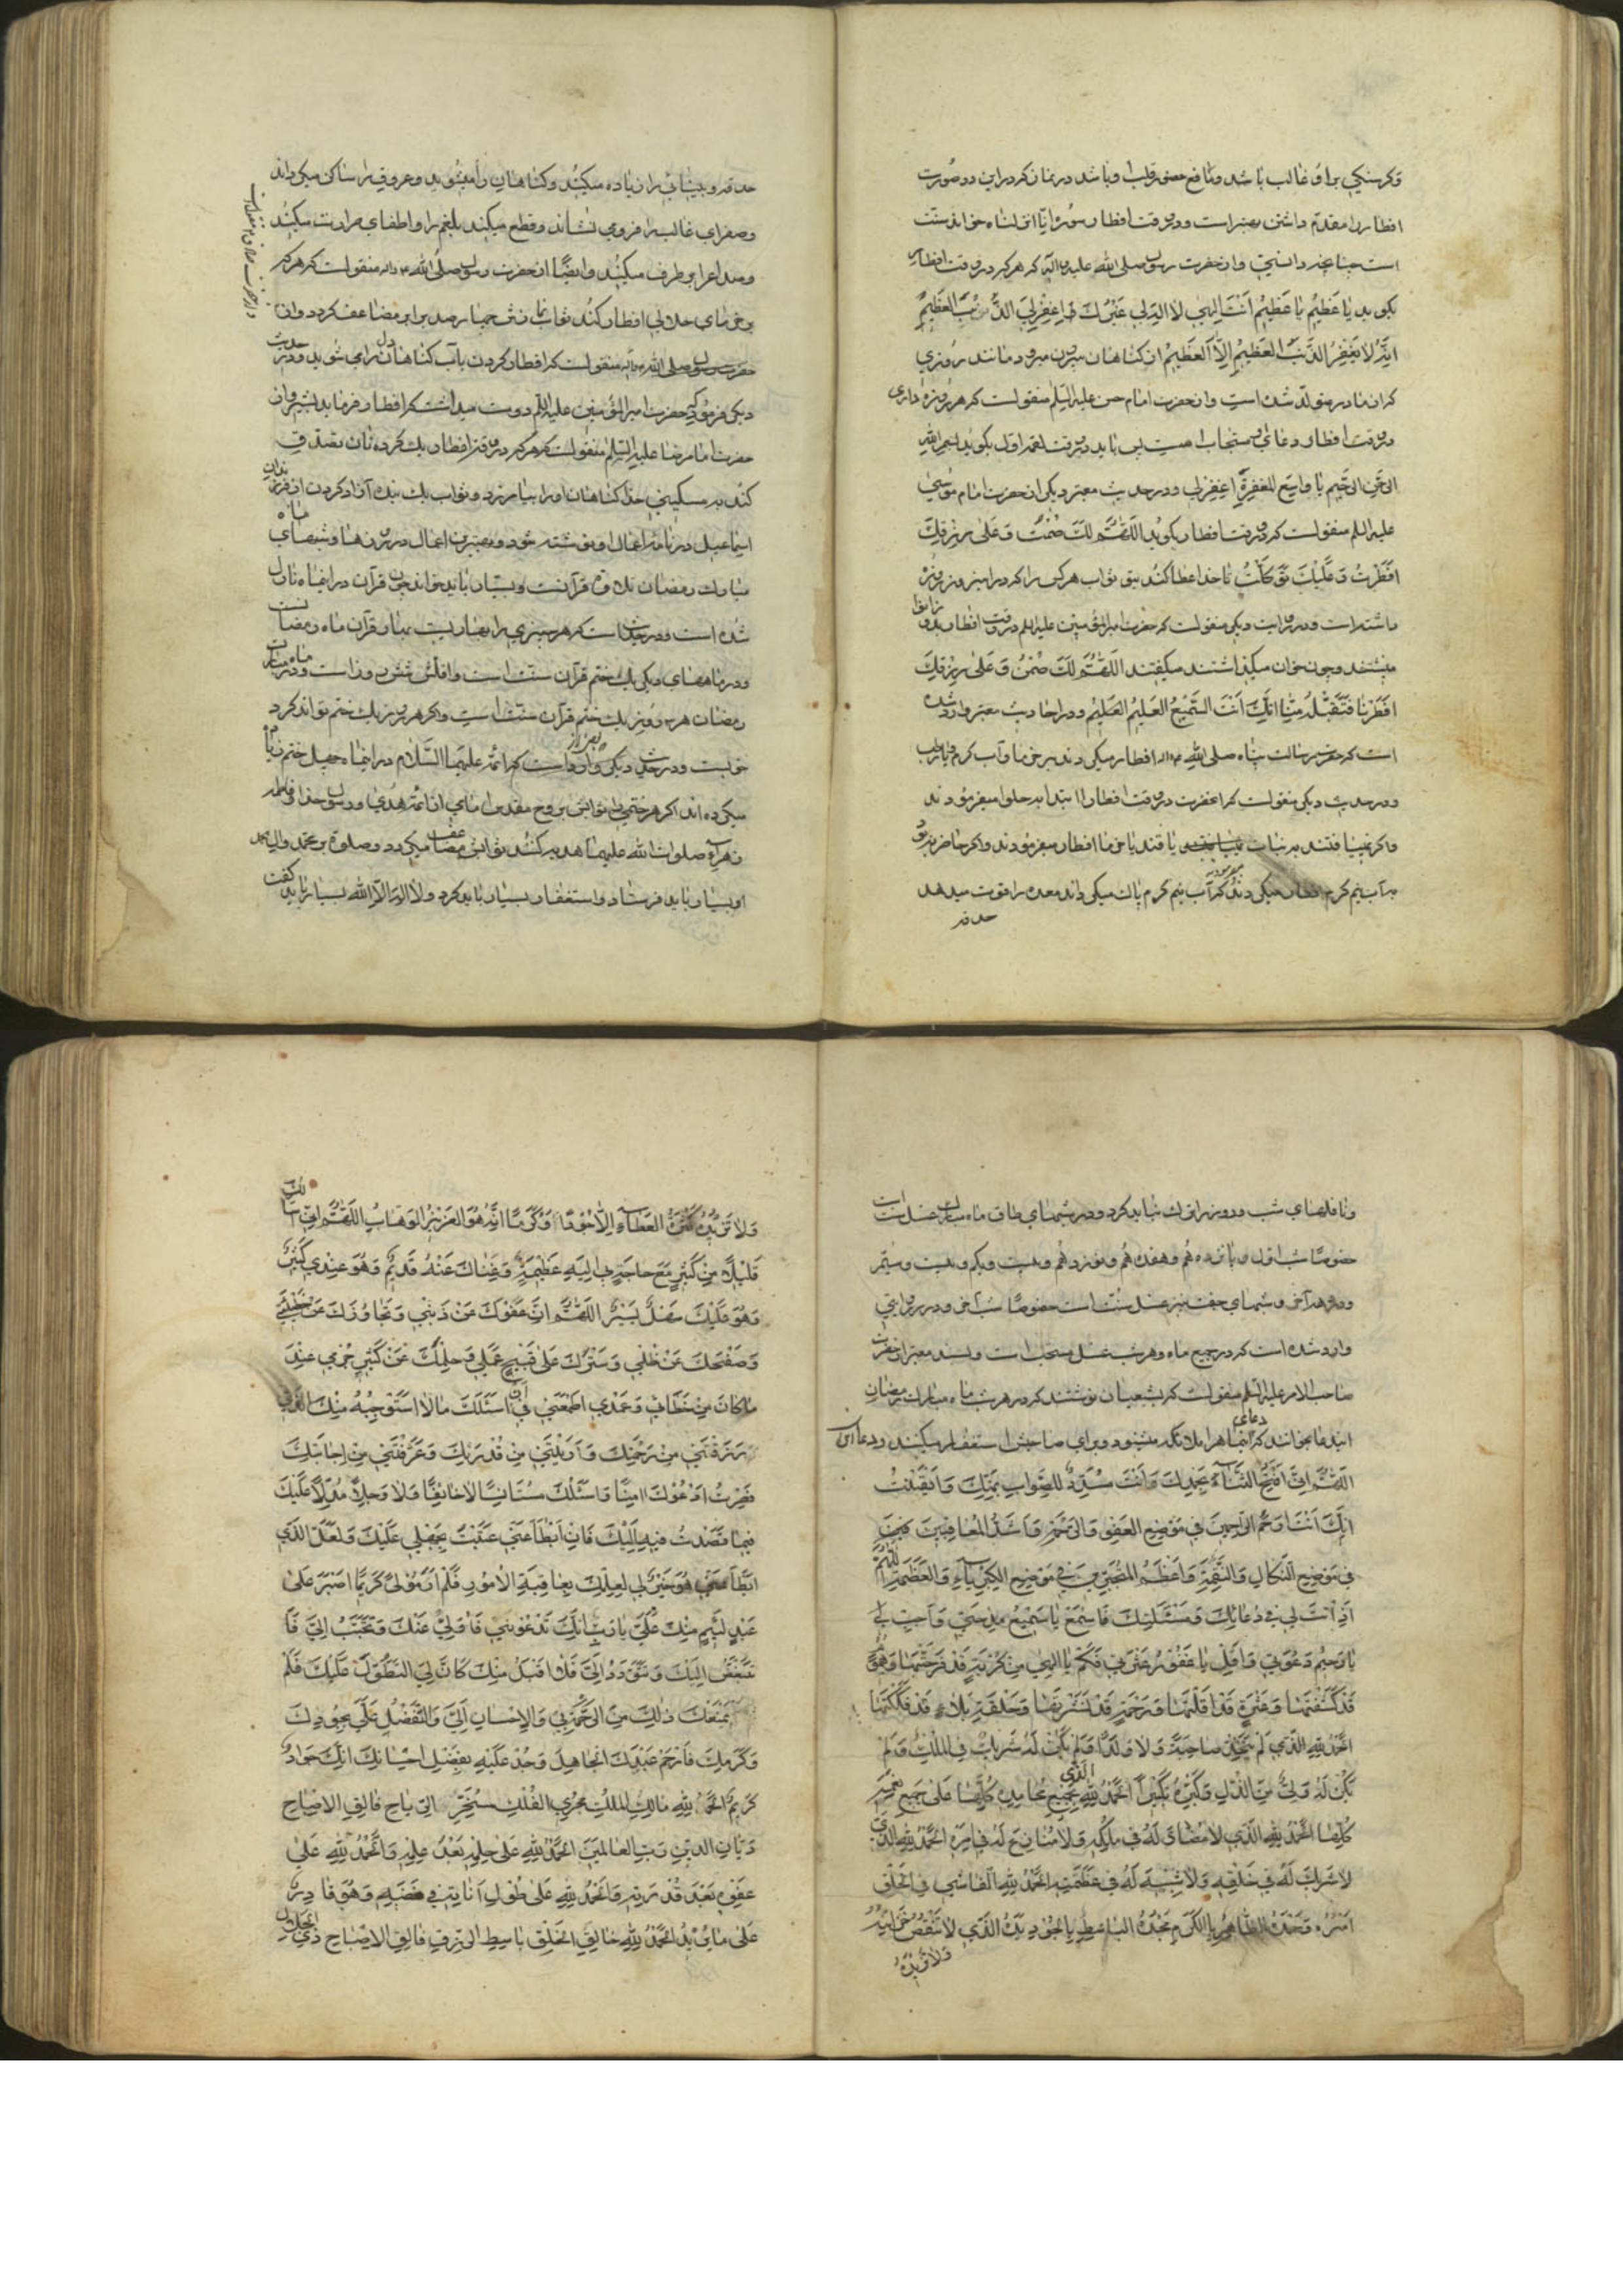 و گرسنگی بر او غالب باشد و مانع حضور قلب او باشد در نماز کردن در این دو صورت
افطار را مقدم داشتن بهتر است و در وقت افطار سورهٔ انا انزلناه خواندن سنت
است چنانچه دانستی و از حضرت رسول صلی الله علیه و آله که هر که در وقت افطار
بگوید یَا عَظِیمُ یَا عَظِیمُ اَنْتَ اِلهِی لَا اِلهَ لِی غَیْرُكَ اِغْفِرْلِیَ الذَّنْبَ الْعَظِیمَ
اِنَّهُ لَا یَغْفِرُ الذَّنْبَ الْعَظِیمَ اِلَّا الْعَظِیمُ از گناهان بیرون میرود مانند روزی
که از مادر متولد شده است و از حضرت امام حسن علیه السلم منقولست که هر روزه داری
در وقت افطار دعای مستجاب هست پس باید در وقت لقمه اول بگوید بسم الله
الرحمن الرحیم یا واسع المغفرة اغفرلی و در حدیث معتبر دیگر از حضرت امام موسی
علیه السلم منقولست که در وقت افطار بگوید اَللّهُمَّ لَكَ صُمْتُ وَ عَلَی رِزْقِكَ
اَفْطَرْتُ وَ عَلَیْكَ تَوَكَّلْتُ تا خدا عطا کند بتو ثواب هر کس را که در این روز روزه
داشته است و در روایت دیگر منقولست که حضرت امیرالمؤمنین علیه السلم در وقت افطار بدو زانو
مینشستند و چون خوان میگذاشتند میگفتند اَللّهُمَّ لَكَ صُمْنَا وَ عَلَی رِزْقِكَ
اَفْطَرْنَا فَتَقَبَّلْهُ مِنَّا اِنَّكَ اَنْتَ السَّمِیعُ الْعَلِیمُ و در احادیث معتبر وارد شده
است که حضرت رسالت پناه صلی الله علیه و آله افطار میکردند بر خرما و آب گرم یا رطب
و در حدیث دیگر منقولست که آنحضرت در وقت افطار ابتدا بحلوا میفرمودند
و اگر نمییافتند به نبات یا قند یا خرما افطار میفرمودند و اگر حاضر نبود
به آب نیم گرم افطار میکردند که آب نیم گرم پاك میگرداند معده را قوت میدهد
حدقه
حدقه و بینائی را زیاده میکند و گناهان را میشوید و عروق را ساکن میگرداند
و صفرای غالب را فرو می نشاند و قطع میکند بلغم را و اطفای حرارت میکند
و صداع را برطرف میکند و ایضًا از حضرت رسول صلی الله علیه و آله منقولست که هر که
بر خرمای حلالی افطار کند ثواب نمازش چهار صد برابر مضاعف گردد و از
حضرت رسول صلی الله علیه و آله منقولست که افطار کردن بآب گناهان دل را می شوید و در حدیث
دیگر فرموده که حضرت امیر المؤمنین علیه السلم دوست میداشت که افطار فرماید بشیر و از
حضرت امام رضا علیه السلم منقولست که هر که در وقت افطار یك گرده نان تصدق
کند به مسکینی خدا گناهان او را بیامرزد و ثواب یك بنده آزاد کردن از فرزندان
اسماعیل در نامه اعمال او نوشته شود و بهترین اعمال در روزها و شبهای ماه
مبارك رمضان تلاوة قرآنست و بسیار باید خواند چون قرآن در اینماه نازل
شده است و در حدیث است که هر چیزی را بهاریست بهار قرآن ماه رمضانست
و در ماههای دیگر یك ختم قرآن سنت است و اقلش شش روز است و در ماه مبارك
رمضان هر سه روز یك ختم قرآن سنت است و اگر هر روز یك ختم تواند کرد
خوبست و در حدیث دیگر وارد است که ائمه علیهم السلام در اینماه چهل ختم زیاد
میکرده اند اگر هر ختمی را ثوابش بروح مقدس امامی از ائمه هدی و رسول خدا و فاطمه
زهراء صلوات الله علیهما هدیه کند ثوابش مضاعف میگردد و صلوة بر محمد و آل محمد
او بسیار باید فرستاد و استغفار بسیار باید کرد و لا اله الا الله بسیار باید گفت
و نافلهای شب و روز را ترك نباید کرد و در شبهای طاق ماه مبارك غسل سنت است
خصوصًا شب اول و پانزدهم و هفدهم و نوزدهم و بیست و یکم و بیست و سیم
و در دهه آخر و شبهای جفت نیز غسل سنت است خصوصًا شب آخر و در روایتی
وارد شده است که در جمیع ماه و هر شب غسل مستحب است و بسند معتبر از حضرت
صاحب الامر علیه السلم منقولست که بشیعیان نوشتند که در هر شب ماه مبارك رمضان
این دعا بخوانند که دعای اینماه را ملائکه میشنوند و برای صاحبش استغفار میکنند و دعا این است
اَللّهُمَّ اِنِّی اَفْتَتِحُ الثَّنَاءَ بِحَمْدِكَ وَ اَنْتَ مُسَدِّدٌ لِلصَّوَابِ بِمَنِّكَ وَ اَیْقَنْتُ
اَنَّكَ اَنْتَ اَرْحَمُ الرَّاحِمِینَ فِی مَوْضِعِ الْعَفْوِ وَ الرَّحْمَةِ وَ اَشَدُّ الْمُعَاقِبِینَ
فِی مَوْضِعِ النَّكَالِ وَ النَّقِمَةِ وَ اَعْظَمُ الْمُتَجَبِّرِینَ فِی مَوْضِعِ الْكِبْرِیَاءِ وَ الْعَظَمَةِ اَللّهُمَّ
اَذِنْتَ لِی فِی دُعَائِكَ وَ مَسْئَلَتِكَ فَاسْمَعْ یَا سَمِیعُ مِدْحَتِی وَ اَجِبْ
یَا رَحِیمُ دَعْوَتِی وَ اَقِلْ یَا غَفُورُ عَثْرَتِی فَكَمْ یَا اِلهِی مِنْ كُرْبَةٍ قَدْ فَرَّجْتَهَا وَ هُمُومٍ
قَدْ كَشَفْتَهَا وَ عَثْرَةٍ قَدْ اَقَلْتَهَا وَ رَحْمَةٍ قَدْ نَشَرْتَهَا وَ حَلْقَةِ بَلَاءٍ قَدْ فَكَكْتَهَا
اَلْحَمْدُ لِلّهِ الَّذِی لَمْ یَتَّخِذْ صَاحِبَةً وَ لَا وَلَدًا وَ لَمْ یَكُنْ لَهُ شَرِیكٌ فِی الْمُلْكِ وَ لَمْ
یَكُنْ لَهُ وَلِیٌّ مِنَ الذُّلِّ وَ كَبِّرْهُ تَكْبِیرًا اَلْحَمْدُ لِلّهِ بِجَمِیعِ مَحَامِدِهِ كُلِّهَا عَلَی جَمِیعِ نِعَمِهِ
كُلِّهَا اَلْحَمْدُ لِلّهِ الَّذِی لَا مُضَادَّ لَهُ فِی مُلْكِهِ وَ لَا مُنَازِعَ لَهُ فِی اَمْرِهِ اَلْحَمْدُ لِلّهِ الَّذِی
لَا شَرِیكَ لَهُ فِی خَلْقِهِ وَ لَا شَبِیهَ لَهُ فِی عَظَمَتِهِ اَلْحَمْدُ لِلّهِ الْفَاشِی فِی الْخَلْقِ
اَمْرُهُ وَ حَمْدُهُ الظَّاهِرِ بِالْكَرَمِ مَجْدُهُ الْبَاسِطِ بِالْجُودِ یَدَهُ الَّذِی لَا تَنْقُصُ خَزَائِنُهُ
وَلَا تَزِیدُهُ
وَ لَا تَزِیدُهُ كَثْرَةُ الْعَطَاءِ اِلَّا جُودًا وَ كَرَمًا اِنَّهُ هُوَ الْعَزِیزُ الْوَهَّابُ اَللّهُمَّ اِنِّی اَسْأَلُكَ
قَلِیلًا مِنْ كَثِیرٍ مَعَ حَاجَةٍ بِی اِلَیْهِ عَظِیمَةٍ وَ غِنَاكَ عَنْهُ قَدِیمٌ وَ هُوَ عِنْدِی كَثِیرٌ
وَ هُوَ عَلَیْكَ سَهْلٌ یَسِیرٌ اَللّهُمَّ اِنَّ عَفْوَكَ عَنْ ذَنْبِی وَ تَجَاوُزَكَ عَنْ خَطِیئَتِی
وَ صَفْحَكَ عَنْ ظُلْمِی وَ سَتْرَكَ عَلَی قَبِیحِ عَمَلِی وَ حِلْمَكَ عَنْ كَثِیرِ جُرْمِی عِنْدَ
مَا كَانَ مِنْ خَطَائِی وَ عَمْدِی اَطْمَعَنِی فِی اَنْ اَسْئَلَكَ مَا لَا اَسْتَوْجِبُهُ مِنْكَ الَّذِی
رَزَقْتَنِی مِنْ رَحْمَتِكَ وَ اَرَیْتَنِی مِنْ قُدْرَتِكَ وَ عَرَّفْتَنِی مِنْ اِجَابَتِكَ
فَصِرْتُ اَدْعُوكَ امِنًا وَ اَسْئَلُكَ مُسْتَأْنِسًا لَا خَائِفًا وَ لَا وَجِلًا مُدِلًّا عَلَیْكَ
فِیمَا قَصَدْتُ فِیهِ اِلَیْكَ فَاِنْ اَبْطَأَ عَنِّی عَتَبْتُ بِجَهْلِی عَلَیْكَ وَ لَعَلَّ الَّذِی
اَبْطَأَ عَنِّی هُوَ خَیْرٌ لِی لِعِلْمِكَ بِعَاقِبَةِ الْاُمُورِ فَلَمْ اَرَ مَوْلًی كَرِیمًا اَصْبَرَ عَلَی
عَبْدٍ لَئِیمٍ مِنْكَ عَلَیَّ یَا رَبِّ اِنَّكَ تَدْعُونِی فَاُوَلِّی عَنْكَ وَ تَتَحَبَّبُ اِلَیَّ فَاَ
تَبَغَّضُ اِلَیْكَ وَ تَتَوَدَّدُ اِلَیَّ فَلَا اَقْبَلُ مِنْكَ كَاَنَّ لِیَ التَّطَوُّلَ عَلَیْكَ فَلَمْ
یَمْنَعْكَ ذلِكَ مِنَ الرَّحْمَةِ بِی وَ الْاِحْسَانِ اِلَیَّ وَ التَّفَضُّلِ عَلَیَّ بِجُودِكَ
وَ كَرَمِكَ فَارْحَمْ عَبْدَكَ الْجَاهِلَ وَ جُدْ عَلَیْهِ بِفَضْلِ اِحْسَانِكَ اِنَّكَ جَوَادٌ
كَرِیمٌ اَلْحَمْدُ لِلّهِ مَالِكِ الْمُلْكِ مُجْرِی الْفُلْكِ مُسَخِّرِ الرِّیَاحِ فَالِقِ الْاِصْبَاحِ
دَیَّانِ الدِّینِ رَبِّ الْعَالَمِینَ اَلْحَمْدُ لِلّهِ عَلَی حِلْمِهِ بَعْدَ عِلْمِهِ وَ الْحَمْدُ لِلّهِ عَلَی
عَفْوِهِ بَعْدَ قُدْرَتِهِ وَ الْحَمْدُ لِلّهِ عَلَی طُولِ اَنَاتِهِ فِی غَضَبِهِ وَ هُوَ قَادِرٌ
عَلَی مَا یُرِیدُ اَلْحَمْدُ لِلّهِ خَالِقِ الْخَلْقِ بَاسِطِ الرِّزْقِ فَالِقِ الْاِصْبَاحِ ذِی الْجَلَالِ